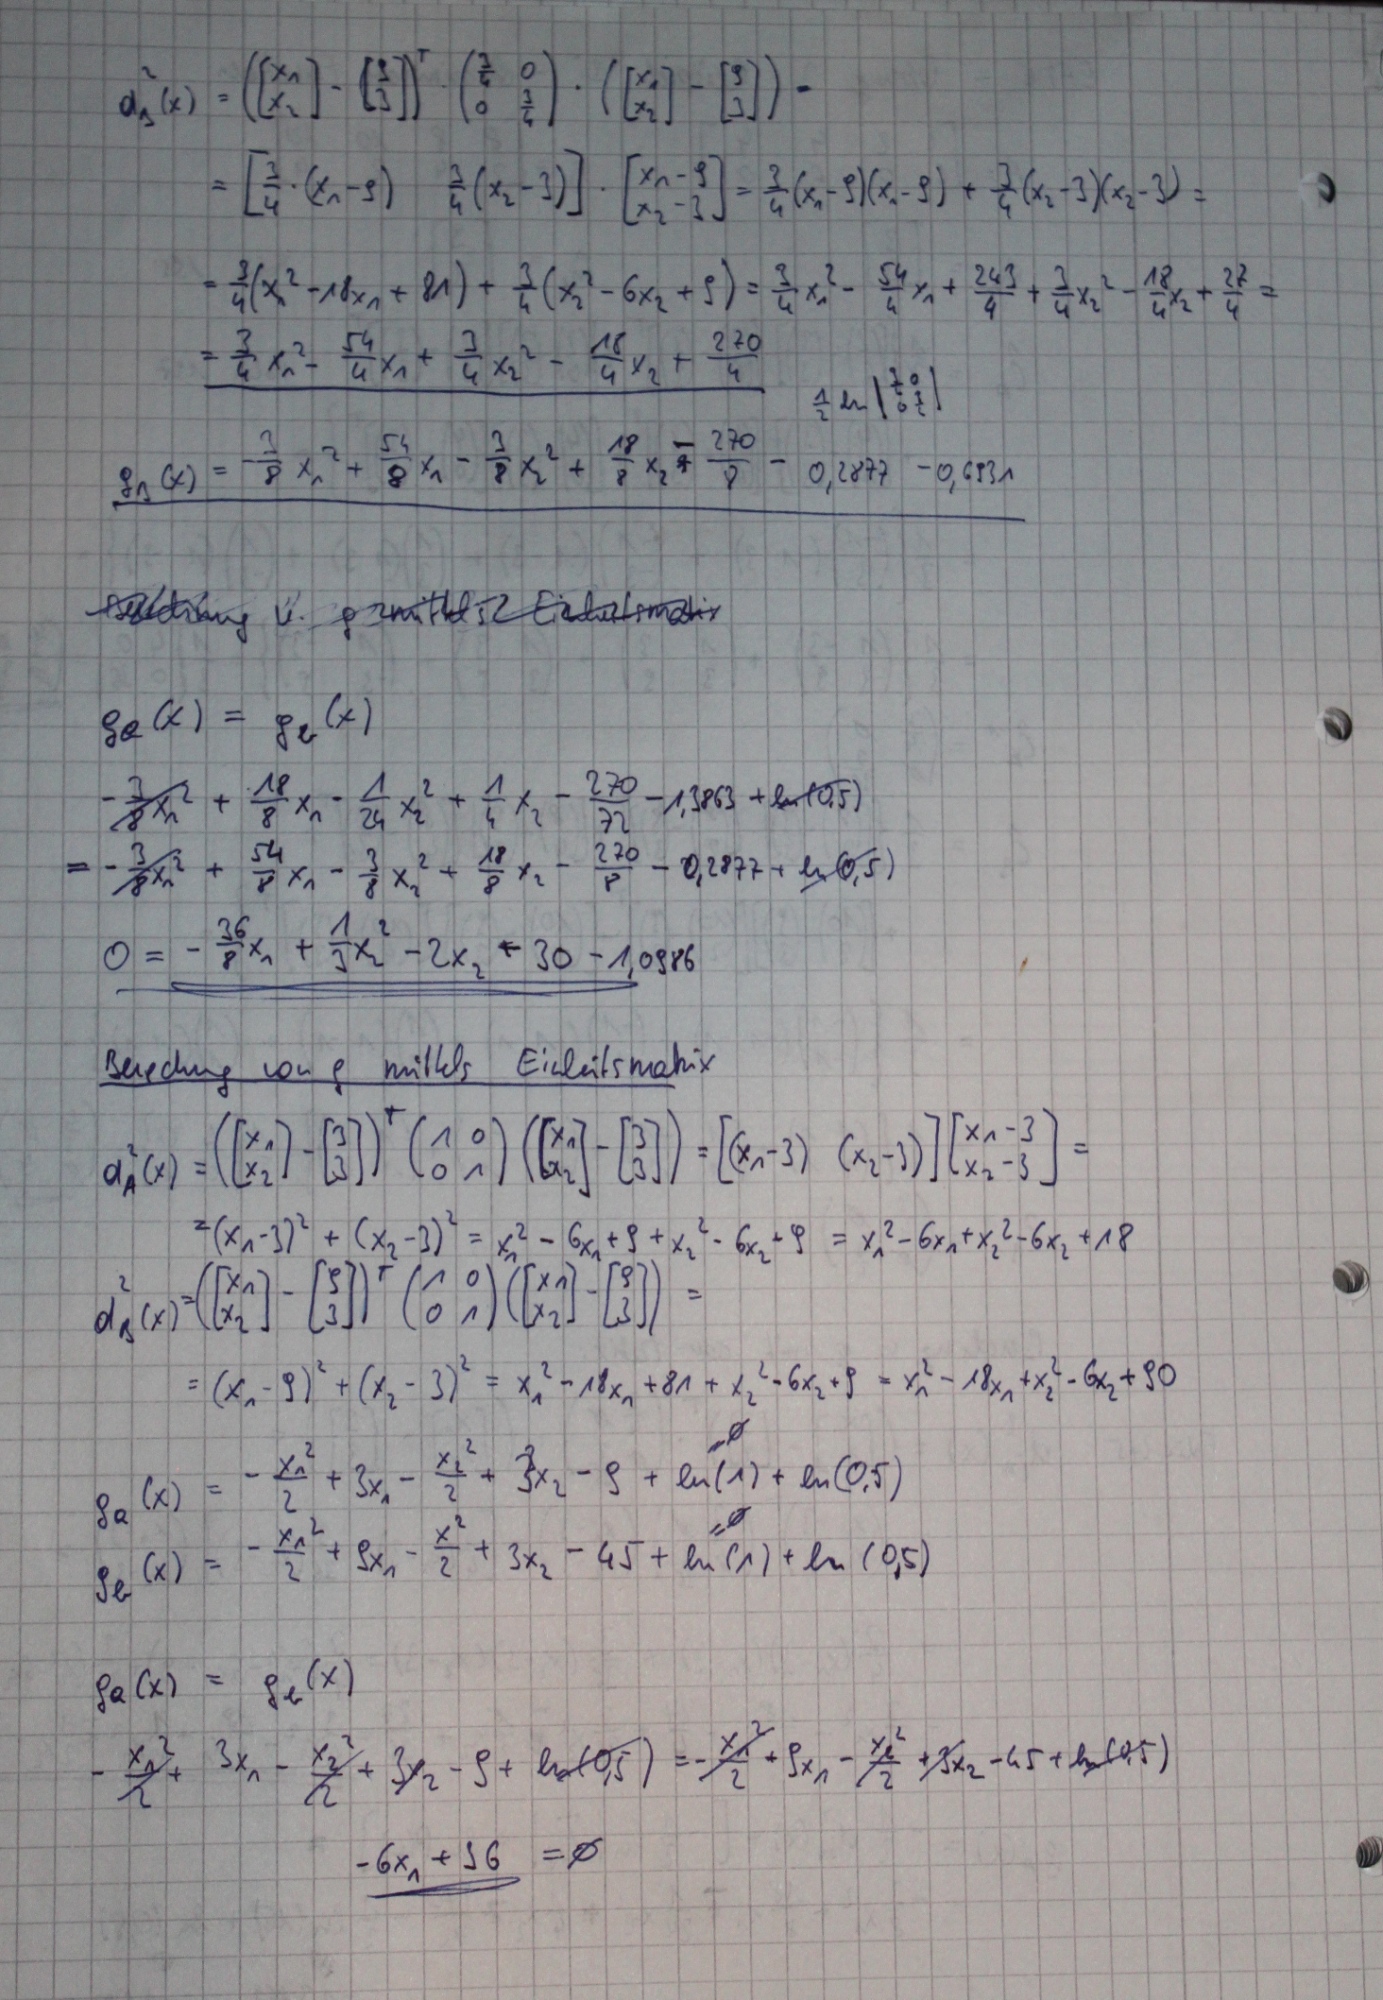 d_B²(x) = ([x₁ x₂] - [9 3])ᵀ · (3/4 0 0 3/4) · ([x₁ x₂] - [9 3]) =
= [3/4·(x₁-9) 3/4(x₂-3)] · [x₁-9 x₂-3] = 3/4(x₁-9)(x₁-9) + 3/4(x₂-3)(x₂-3) =
= 3/4(x₁²-18x₁+81) + 3/4(x₂²-6x₂+9) = 3/4x₁² - 54/4x₁ + 243/4 + 3/4x₂² - 18/4x₂ + 27/4 =
= 3/4x₁² - 54/4x₁ + 3/4x₂² - 18/4x₂ + 270/4
1/2 ln
g_B(x) = -3/8x₁² + 54/8x₁ - 3/8x₂² + 18/8x₂ - 270/8 - 0,2877 - 0,6931
Berechnung v. g mittels Einheitsmatrix
g_a(x) = g_b(x)
-3/8x₁² + 18/8x₁ - 1/24x₂² + 1/4x₂ - 270/72 - 1,3863 + ln(0,5)
= -3/8x₁² + 54/8x₁ - 3/8x₂² + 18/8x₂ - 270/8 - 0,2877 + ln(0,5)
0 = -36/8x₁ + 1/3x₂² - 2x₂ + 30 - 1,0986
Berechnung von g mittels Einheitsmatrix
d_A²(x) = ([x₁ x₂] - [3 3])ᵀ (1 0 0 1) ([x₁ x₂] - [3 3]) = [(x₁-3) (x₂-3)] [x₁-3 x₂-3] =
= (x₁-3)² + (x₂-3)² = x₁² - 6x₁ + 9 + x₂² - 6x₂ + 9 = x₁² - 6x₁ + x₂² - 6x₂ + 18
d_B²(x) = ([x₁ x₂] - [9 3])ᵀ (1 0 0 1) ([x₁ x₂] - [9 3]) =
= (x₁-9)² + (x₂-3)² = x₁² - 18x₁ + 81 + x₂² - 6x₂ + 9 = x₁² - 18x₁ + x₂² - 6x₂ + 90
=0
g_a(x) = -x₁²/2 + 3x₁ - x₂²/2 + 3x₂ - 9 + ln(1) + ln(0,5)
=0
g_b(x) = -x₁²/2 + 9x₁ - x²/2 + 3x₂ - 45 + ln(1) + ln(0,5)
g_a(x) = g_b(x)
-x₁²/2 + 3x₁ - x₂²/2 + 3x₂ - 9 + ln(0,5) = -x₁²/2 + 9x₁ - x₂²/2 + 3x₂ - 45 + ln(0,5)
-6x₁ + 36 = 0